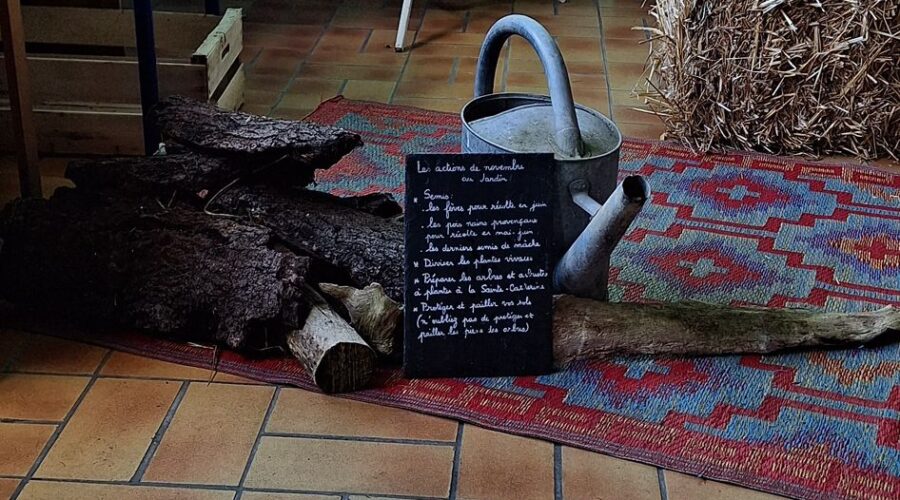 Les actions de novembre
au Jardin
* Semis:
- les fèves pour récolte en juin
- les pois nains provençaux
pour récolte en mai-juin
- les derniers semis de mâche
* Diviser les plantes vivaces
* Préparer les arbres et arbustes
à plantés à la Sainte-Catherine
* Protéger et pailler vos sols
(n'oubliez pas de protéger et
pailler les pieds des arbres)